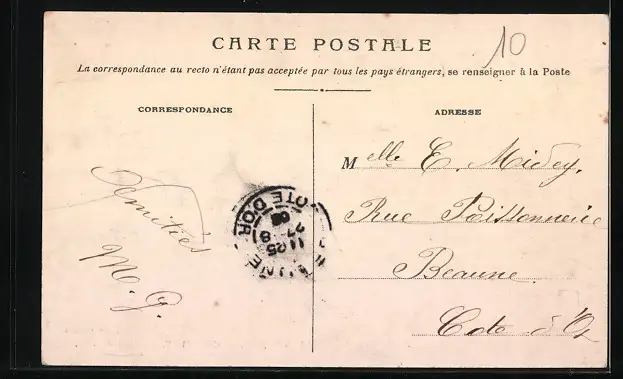 CARTE POSTALE
10
La correspondance au recto n'étant pas acceptée par tous les pays étrangers, se renseigner à la Poste
CORRESPONDANCE
ADRESSE
Melle E. Midey.
Rue Poissonnerie
Beaune.
Cote d'Or
Amitiés
M. J.
BEAUNE
COTE D'OR
11 25
27 - 8